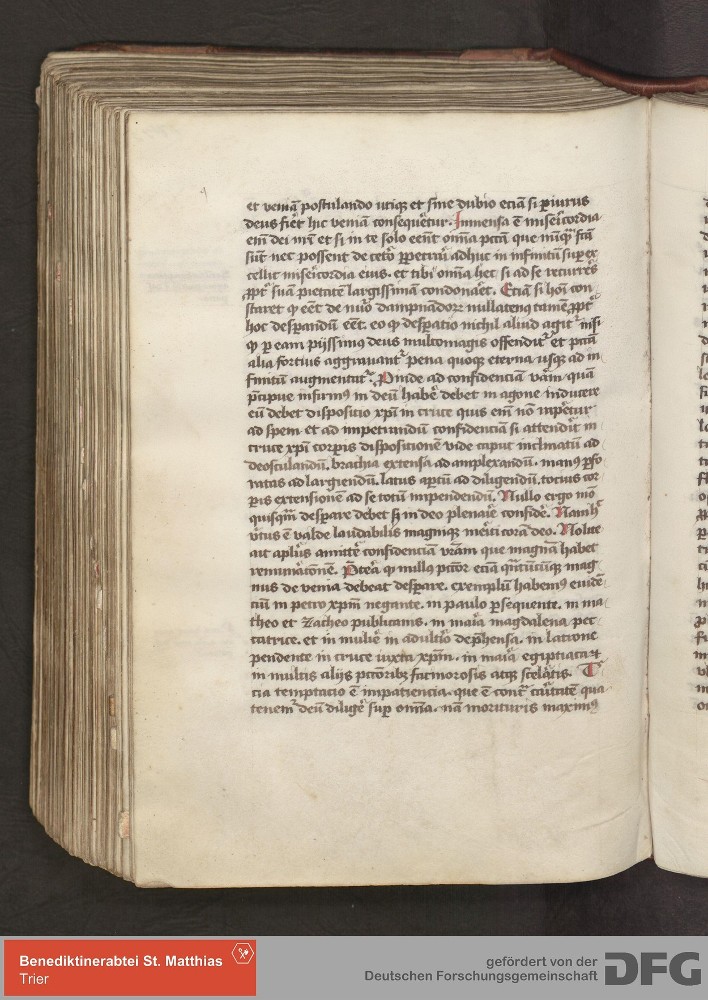 et veniā postulando utiqꝫ et sine dubio eciā si piurus
deus fieꝛt hic veniā consequēꝛtur. Inmensa ē misericordia
eīm dei nr̄i et si in te solo eēnt om̄ia pctā que nūqᷓ sctā
sūt nec possent de ceto ppetrari adhuc in infinitū sup ex
cellit misericordia eius. et tibi om̄ia hec si ad se recurrēs
ꝓpt suā pietatē largissimā condonaēt. Eciā si hoī con
staret qꝫ eēt de nuō dampnādoꝝ nullatenꝰ tamē ꝓpt
hoc despandū eēt. eo qꝫ despatio nichil aliud agit nisi
qꝫ p eam pijssimꝰ deus multomagis offendit et pctā
alia fortius aggravant pena quoqꝫ eterna usqꝫ ad in
finitū augmentat. Pinde ad confidenciā vāꝫ quā
pcipue infirmꝰ in deū habē debet in agone inducere
eū debet dispositio xp̄i in cruce quis eīm nō rapētur
ad spem et ad impetrandū confidenciā si attendit in
cruce xp̄i corpis dispositionē vide caput inclinatū ad
deosculandū. brachia extensa ad amplexandū. manꝰ pfo
ratas ad largiendū. latus aptū ad diligendū. totius cor
pis extensionē ad se totū impendendū. Nullo ergo mō
quisqᷓm despare debet sꝫ in deo plenaīe confidē. Nam h
v̄tus ē valde laudabilis magniqꝫ mēiti corā deo. Nolite
ait apl̄us amittē confidenciā vr̄am que magnā habet
remunatōnē. Ptea qꝫ nullꝰ pctōr eciā qᷓntūcūqꝫ mag
nus de venia debeat despare. exemplū habemꝰ evidē
ciū in petro xp̄m negante. in paulo psequente. in ma
theo et Zacheo publicanis. in maīa magdalena pec
catrice. et in mulieē in adultīo depħensa. in latrone
pendente in cruce iuxta xp̄m. in maīa egiptiaca et
in multis alijs pctōribꝫ facinorosis atqꝫ scelatis. T
cia temptacio ē inpatiencia. que ē cont caritatē qua
tenem deū diligē sup om̄ia. nā morituris maximꝰ
Benediktinerabtei St. Matthias
Trier
gefördert von der
Deutschen Forschungsgemeinschaft
DFG